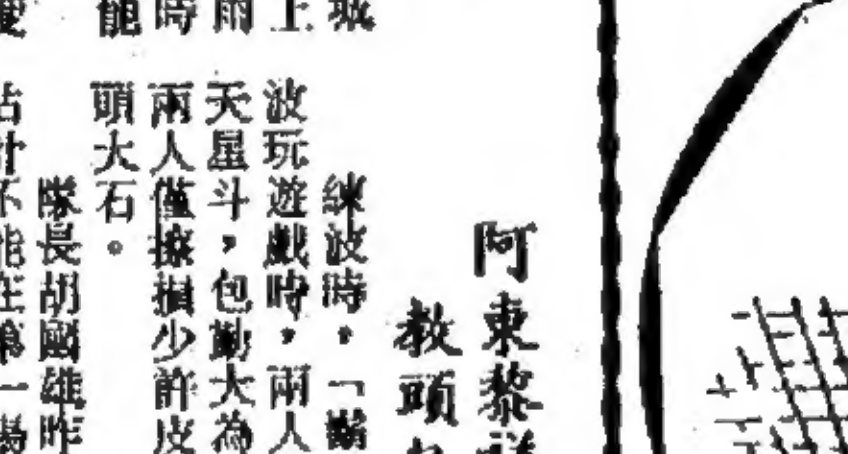 阿東黎
教頭
練波時，「
波玩遊戲時，兩人
天星斗，包勤大為
兩人僅擦損少許皮
頭大石。
隊長胡國雄昨
估計不能在第一場
城
上
雨
時
龍